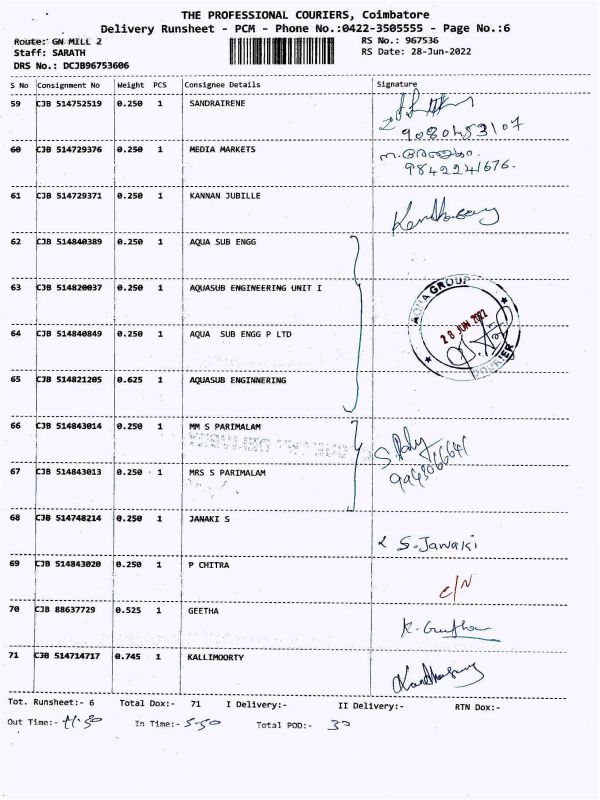 THE PROFESSIONAL COURIERS, Coimbatore
Delivery Runsheet - PCM - Phone No.:0422-3505555 - Page No.:6
Route: GN MILL 2
RS No.: 967536
Staff: SARATH
RS Date: 28-Jun-2022
DRS No.: DCJB96753606
S No Consignment No Weight PCS Consignee Details Signature
59 CJB 514752519 0.250 1 SANDRAIRENE
9080453107
60 CJB 514729376 0.250 1 MEDIA MARKETS
9842241676.
61 CJB 514729371 0.250 1 KANNAN JUBILLE
62 CJB 514840389 0.250 1 AQUA SUB ENGG
63 CJB 514820037 0.250 1 AQUASUB ENGINEERING UNIT I
AQUA GROUP
28 JUN 2022
COURIER
64 CJB 514840849 0.250 1 AQUA SUB ENGG P LTD
65 CJB 514821205 0.625 1 AQUASUB ENGINNERING
66 CJB 514843014 0.250 1 MM S PARIMALAM
67 CJB 514843013 0.250 1 MRS S PARIMALAM
68 CJB 514748214 0.250 1 JANAKI S
S. Janaki
69 CJB 514843020 0.250 1 P CHITRA
C/N
70 CJB 88637729 0.525 1 GEETHA
71 CJB 514714717 0.745 1 KALLIMOORTY
Tot. Runsheet:- 6 Total Dox:- 71 I Delivery:- II Delivery:- RTN Dox:-
Out Time:- 11.50 In Time:- 5-50 Total POD:- 30